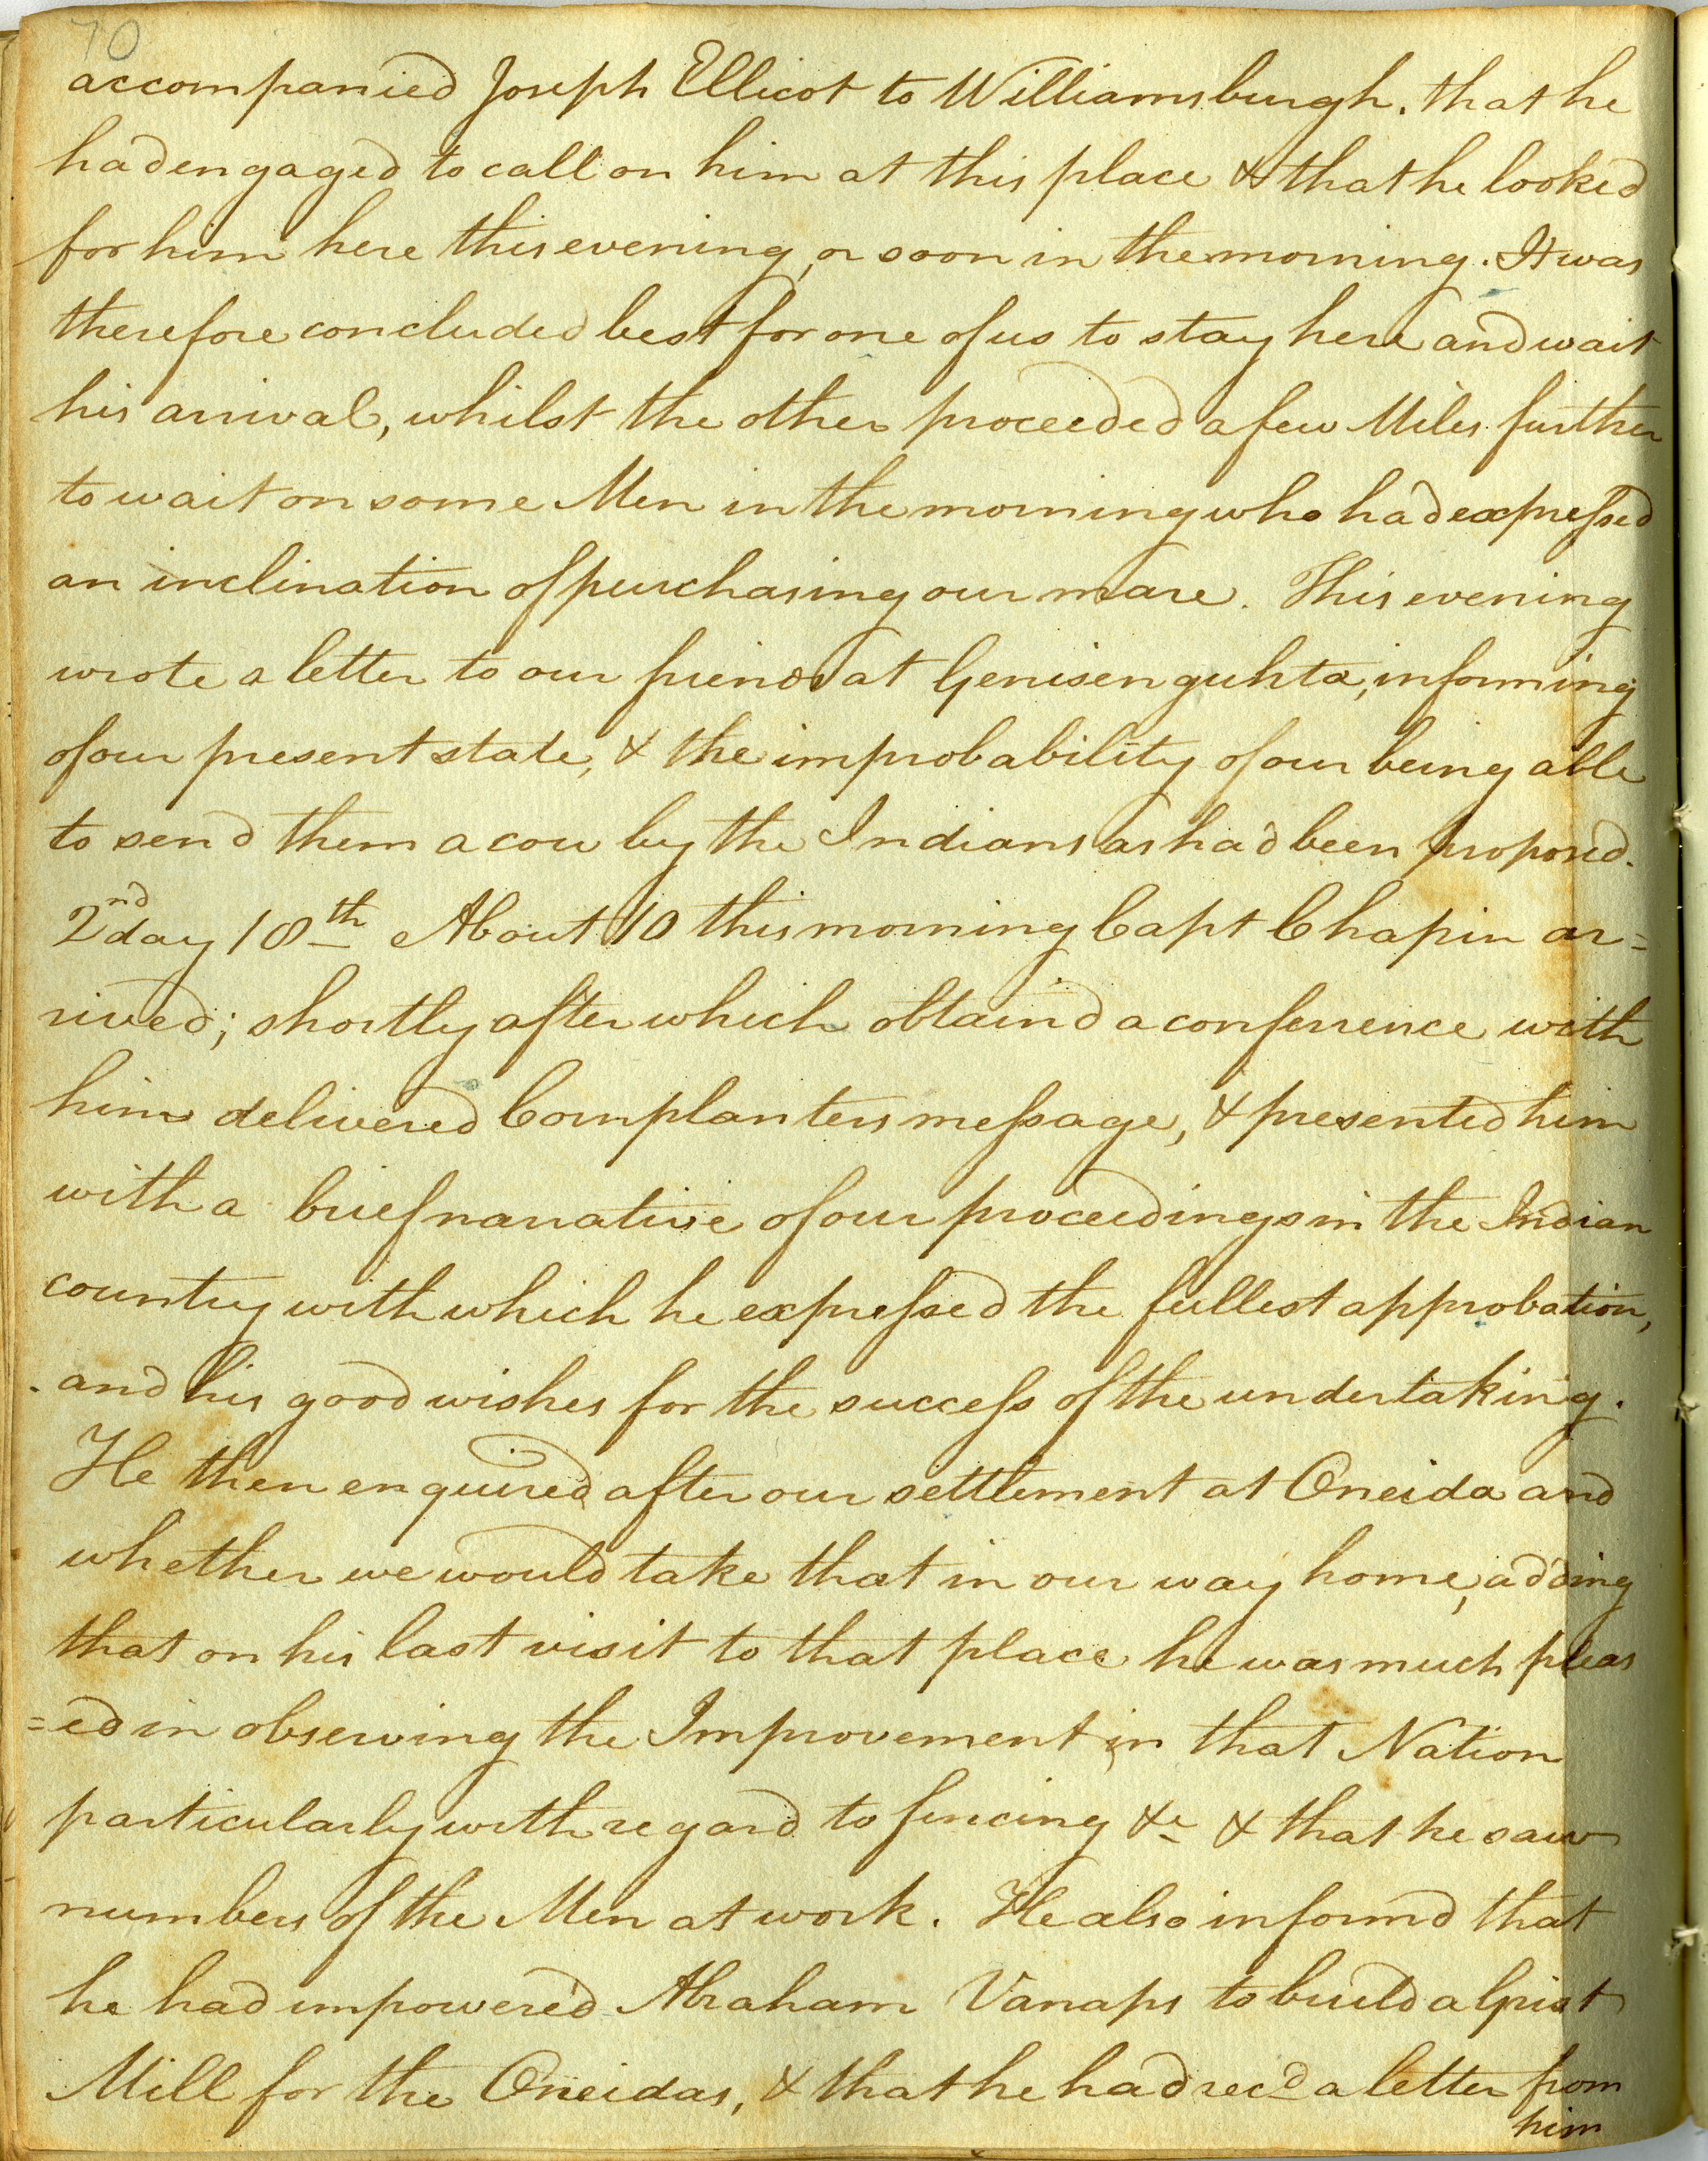 70
accompanied Joseph Ellicot to Williamsburgh. that he
had engaged to call on him at this place & that he looked
for him here this evening, or soon in the morning. It was
therefore concluded best for one of us to stay here and wait
his arrival, whilst the other proceeded a few Miles further
to wait on some Men in the morning who had expressed
an inclination of purchasing our mare. This evening
wrote a letter to our friends at Genisenguhta, informing
of our present state, & the improbability of our being able
to send them a cow by the Indians as had been proposed.
2nd day 18th About 10 this morning Capt Chapin ar=
rived; shortly after which obtain'd a conferrence with
him delivered Cornplanters message, & presented him
with a brief narrative of our proceedings in the Indian
country with which he expressed the fullest approbation,
and his good wishes for the success of the undertaking.
He then enquired after our settlement at Oneida and
whether we would take that in our way home, adding
that on his last visit to that place he was much pleas
=ed in observing the Improvement in that Nation
particularly with regard to fencing &c & that he saw
numbers of the Men at work. He also informd that
he had impowered Abraham Vanaps to build a Grist
Mill for the Oneidas, & that he had recd a letter from
him